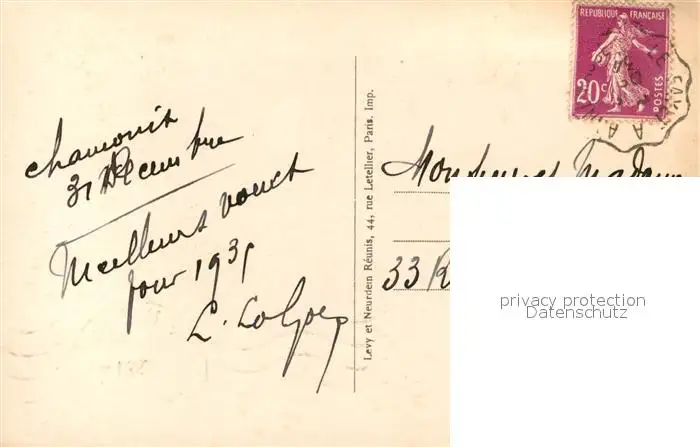 chamonix
31 Décembre
Meilleurs voeux
pour 1935
Levy et Neurdein Réunis, 44, rue Letellier, Paris. Imp.
REPUBLIQUE FRANÇAISE
20c
POSTES
Monsieur et Madame
33 R
privacy protection
Datenschutz